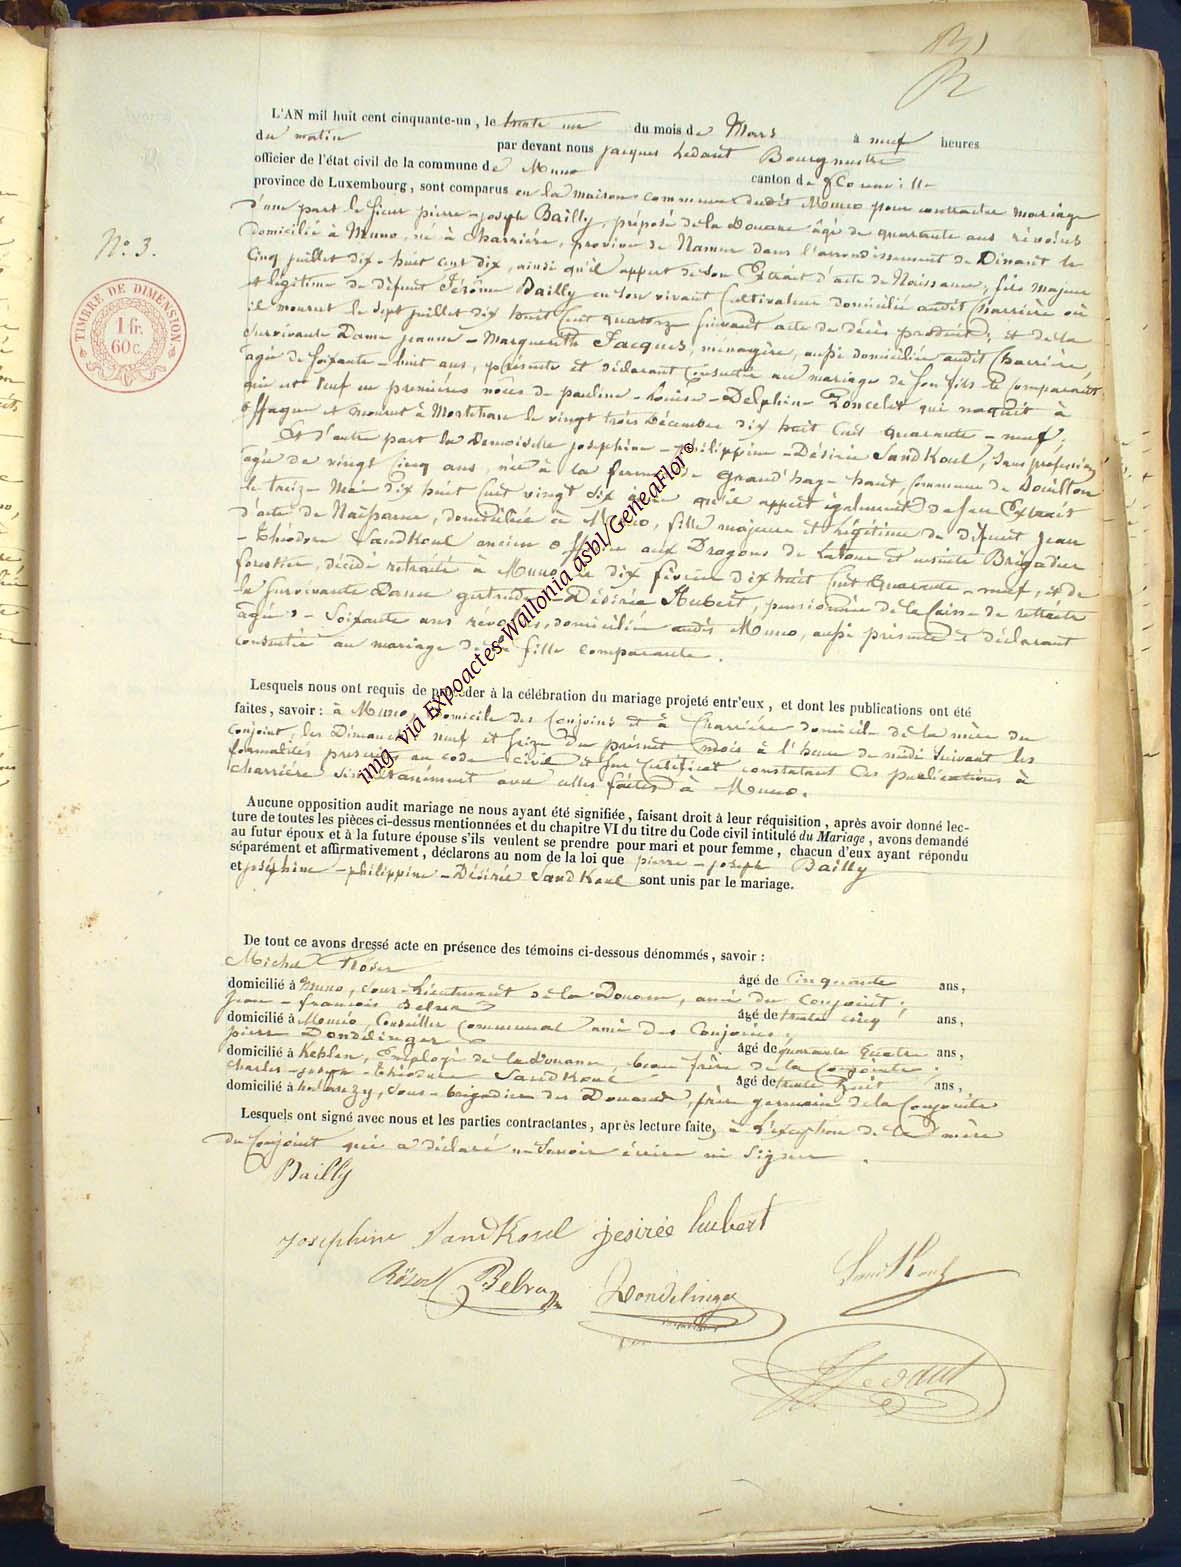 B
L'AN mil huit cent cinquante-un, le trente un du mois de Mars à neuf heures
du matin par devant nous jacques Ledant Bourgmestre
officier de l'état civil de la commune de Muno canton de
province de Luxembourg, sont comparus en la maison commune dudit Muno pour contracter mariage
d'une part le sieur pierre-joseph Bailly, préposé de la Douane âgé de quarante ans révolus
domicilié à Muno, né à Charrière, province de Namur dans l'arrondissement de Dinant le
N.o 3.
Cinq juillet dix-huit cent dix, ainsi qu'il appert de son Extrait d'acte de Naissance, fils majeur
et légitime de défunt Jérôme Bailly en son vivant Cultivateur domicilié audit Charrière où
il mourut le sept juillet dix huit Cent quatorze suivant acte de décès produit; et de la
survivante Dame jeanne-Marguerith Jacques, ménagère, aussi domiciliée audit Charrière,
TIMBRE DE DIMENSION.
1 fr.
60 c.
agée de soixante-huit ans, présente et déclarant consentir au mariage de son fils le comparant
qui est veuf en premières nôces de pauline-Louise-Delphine Poncelet qui naquit à
Offagne et mourut à Mortehan le vingt trois Décembre dix huit Cent quarante-neuf;
Et d'autre part la Demoiselle joséphine-philippine-Désirée SandKoul, sans profession
agée de vingt Cinq ans, née à la ferme de grand'hay-haut, Commune de
le treize Mai dix huit Cent vingt six ainsi qu'il appert également de son Extrait
d'acte de Naissance, domiciliée à Muno, fille majeure et légitime de défunt jean
-Théodore SandKoul ancien officier aux Dragons de Latour et ensuite Brigadier
forestier, décédé retraité à Muno le dix février dix huit Cent quarante-neuf, et de
la survivante Dame gertrude-Désirée Hubert, pensionnée de la Caisse de retraite
agée de soixante ans révolus, domiciliée audit Muno, aussi présente et déclarant
consentir au mariage de sa fille comparante.
Lesquels nous ont requis de procéder à la célébration du mariage projeté entr'eux, et dont les publications ont été
faites, savoir: à Muno domicile des Conjoins et à Charrière domicile de la mère du
Conjoint, les Dimanches neuf et seize du présent mois à l'heure de midi suivant les
formalités prescrites au code civil et par Certificat constatant les publications à
Charrière simultanément avec celles faites à Muno.
Aucune opposition audit mariage ne nous ayant été signifiée, faisant droit à leur réquisition, après avoir donné lec-
ture de toutes les pièces ci-dessus mentionnées et du chapitre VI du titre du Code civil intitulé du Mariage, avons demandé
au futur époux et à la future épouse s'ils veulent se prendre pour mari et pour femme, chacun d'eux ayant répondu
séparément et affirmativement, déclarons au nom de la loi que pierre-joseph Bailly
et joséphine-philippine-Désirée SandKoul sont unis par le mariage.
De tout ce avons dressé acte en présence des témoins ci-dessous dénommés, savoir:
Michel Röser âgé de Cinquante ans,
domicilié à Muno, sous-Lieutenant de la Douane, ami du Conjoint;
jean-françois Belva âgé de trente cinq ans,
domicilié à Muno, Conseiller Communal ami des Conjoins;
pierre Dondelinger âgé de quarante quatre ans,
domicilié à Kehlen, Employé de la douane, beau frère de la Conjointe;
Charles-joseph-théodore SandKoul âgé de trente huit ans,
domicilié à, sous-brigadier des Douanes, frère germain de la Conjointe
Lesquels ont signé avec nous et les parties contractantes, après lecture faite, à l'exception de la mère
du Conjoint qui a déclaré ne savoir écrire ni signer.
Bailly
Josephine SandKoul Desirée hubert
Röser Belva Dondelinger SandKoul
J Ledant
img via Expoactes-Wallonia asbl/GeneaFlor©